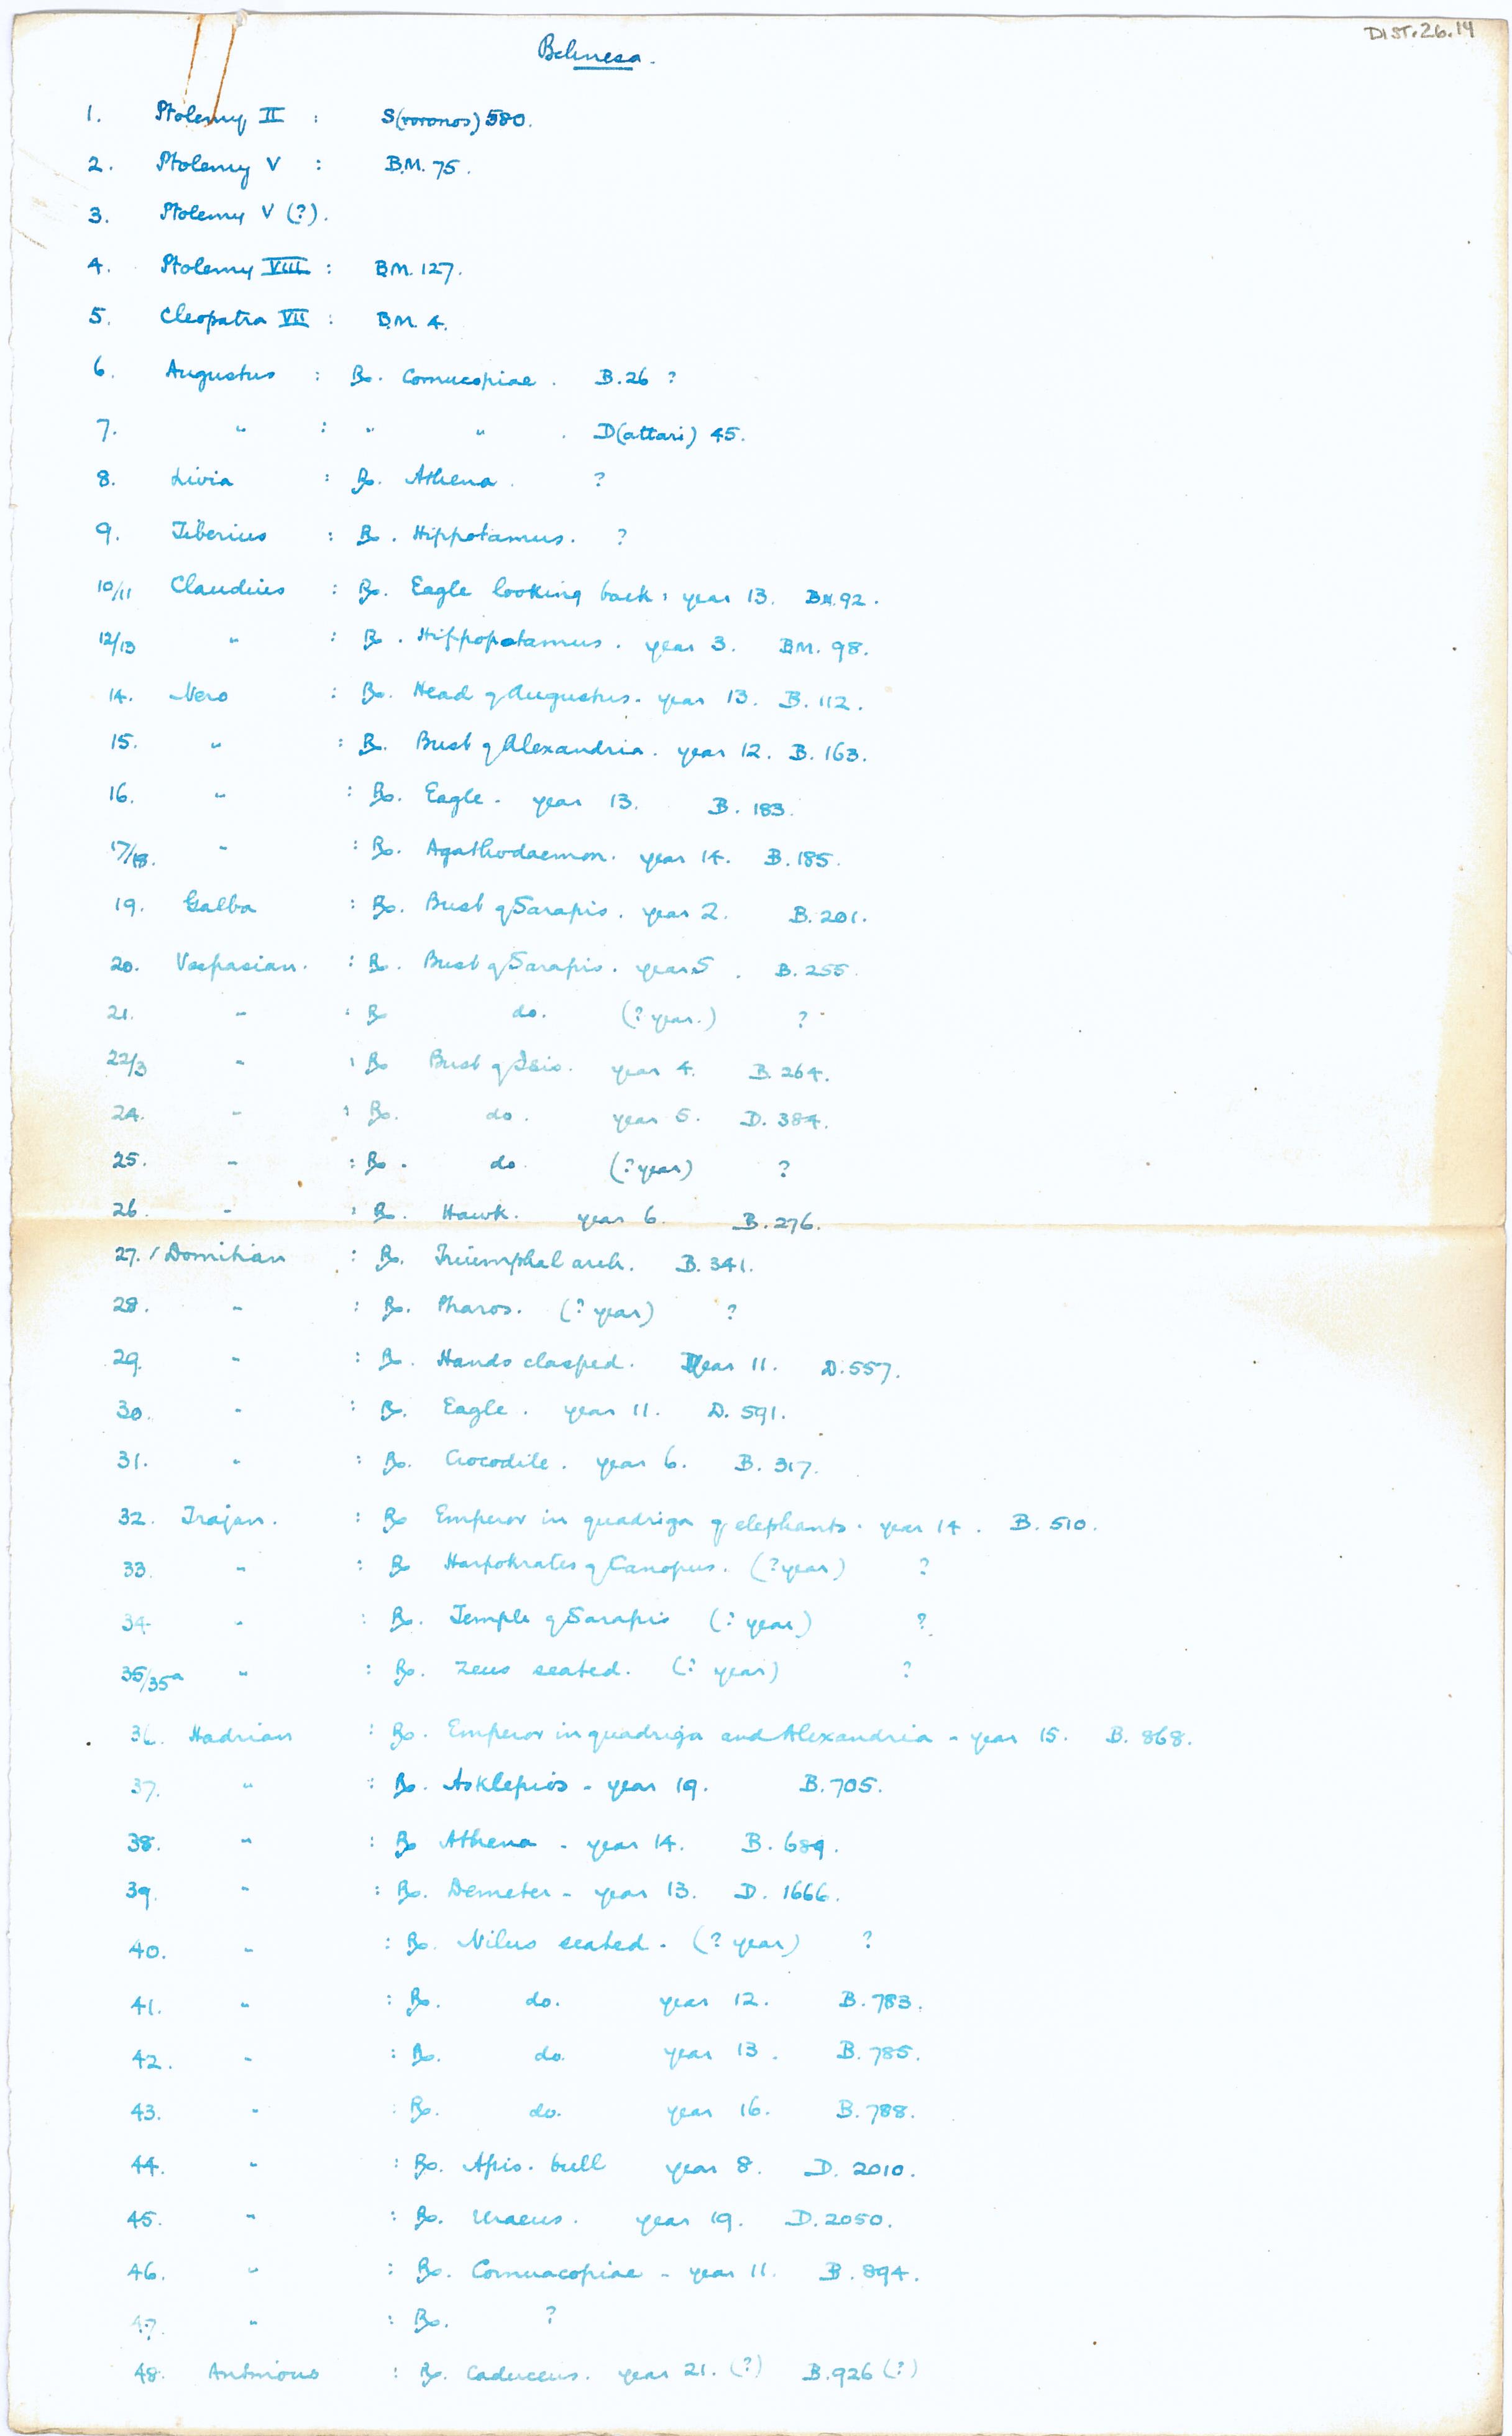 DIST.26.14
Behnesa.
1. Ptolemy II : S(voronos) 580.
2. Ptolemy V : B.M. 75.
3. Ptolemy V (?).
4. Ptolemy VIII : B.M. 127.
5. Cleopatra VII : B.M. 4.
6. Augustus : Rx. Cornucopiae. B.26 ?
7. " : " " . D(attari) 45.
8. Livia : Rx. Athena. ?
9. Tiberius : Rx. Hippotamus. ?
10/11 Claudius : Rx. Eagle looking back, year 13. BM.92.
12/13 " : Rx. Hippopotamus. year 3. BM. 98.
14. Nero : Rx. Head of Augustus. year 13. B. 112.
15. " : Rx. Bust of Alexandria. year 12. B. 163.
16. " : Rx. Eagle - year 13. B. 183.
17/18. " : Rx. Agathodaemon. year 14. B. 185.
19. Galba : Rx. Bust of Sarapis. year 2. B. 201.
20. Vespasian. : Rx. Bust of Sarapis. year 5. B. 255.
21. " : Rx do. (? year.) ?
22/3 " : Rx Bust of Isis. year 4. B. 264.
24. " : Rx. do. year 5. D. 384.
25. " : Rx. do. (? year) ?
26. " : Rx. Hawk. year 6. B. 276.
27. Domitian : Rx. Triumphal arch. B. 341.
28. " : Rx. Pharos. (? year) ?
29. " : Rx. Hands clasped. Year 11. D. 557.
30. " : Rx. Eagle. year 11. D. 591.
31. " : Rx. Crocodile. year 6. B. 317.
32. Trajan. : Rx Emperor in quadriga of elephants. year 14. B. 510.
33. " : Rx Harpokrates of Canopus. (? year) ?
34. " : Rx. Temple of Sarapis (? year) ?
35/35a " : Rx. Zeus seated. (? year) ?
36. Hadrian : Rx. Emperor in quadriga and Alexandria - year 15. B. 868.
37. " : Rx. Asklepios - year 19. B. 705.
38. " : Rx Athena - year 14. B. 689.
39. " : Rx. Demeter - year 13. D. 1666.
40. " : Rx. Nilus seated - (? year) ?
41. " : Rx. do. year 12. B. 783.
42. " : Rx. do. year 13. B. 785.
43. " : Rx. do. year 16. B. 788.
44. " : Rx. Apis. bull year 8. D. 2010.
45. " : Rx. Uraeus. year 19. D. 2050.
46. " : Rx. Cornuacopiae - year 11. B. 894.
47. " : Rx. ?
48. Antinous : Rx. Caduceus. year 21. (?) B. 926 (?)